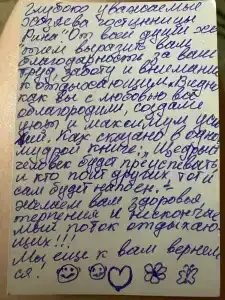 Глубоко уважаемые
хозяева гостинницы
"Рица" От всей души хо-
тим выразить вам
благодарность за ваш
труд, заботу и внимание
к отдыхающим.
как вы с любовью все
облагородили, создали
уют и максимум
Как сказано в одной
мудрой книге: Щедрый
человек будет преуспевать,
и кто поит других тот и
сам будет напоен. +
желаем вам здоровья,
терпения и нескончае
мый поток отдыхаю-
щих!!!
Мы еще к вам вернем
ся!